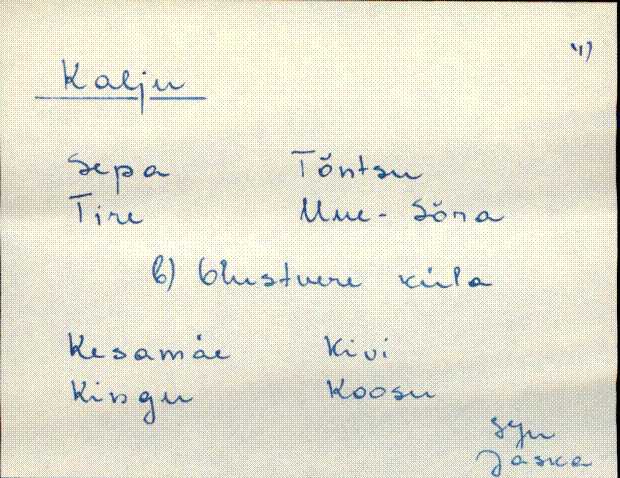 Kalju
Sepa Tõntsu
Tire Uue-Sõra
b) Olustvere küla
Kesamäe Kivi
Kingu Koosu
Jaska